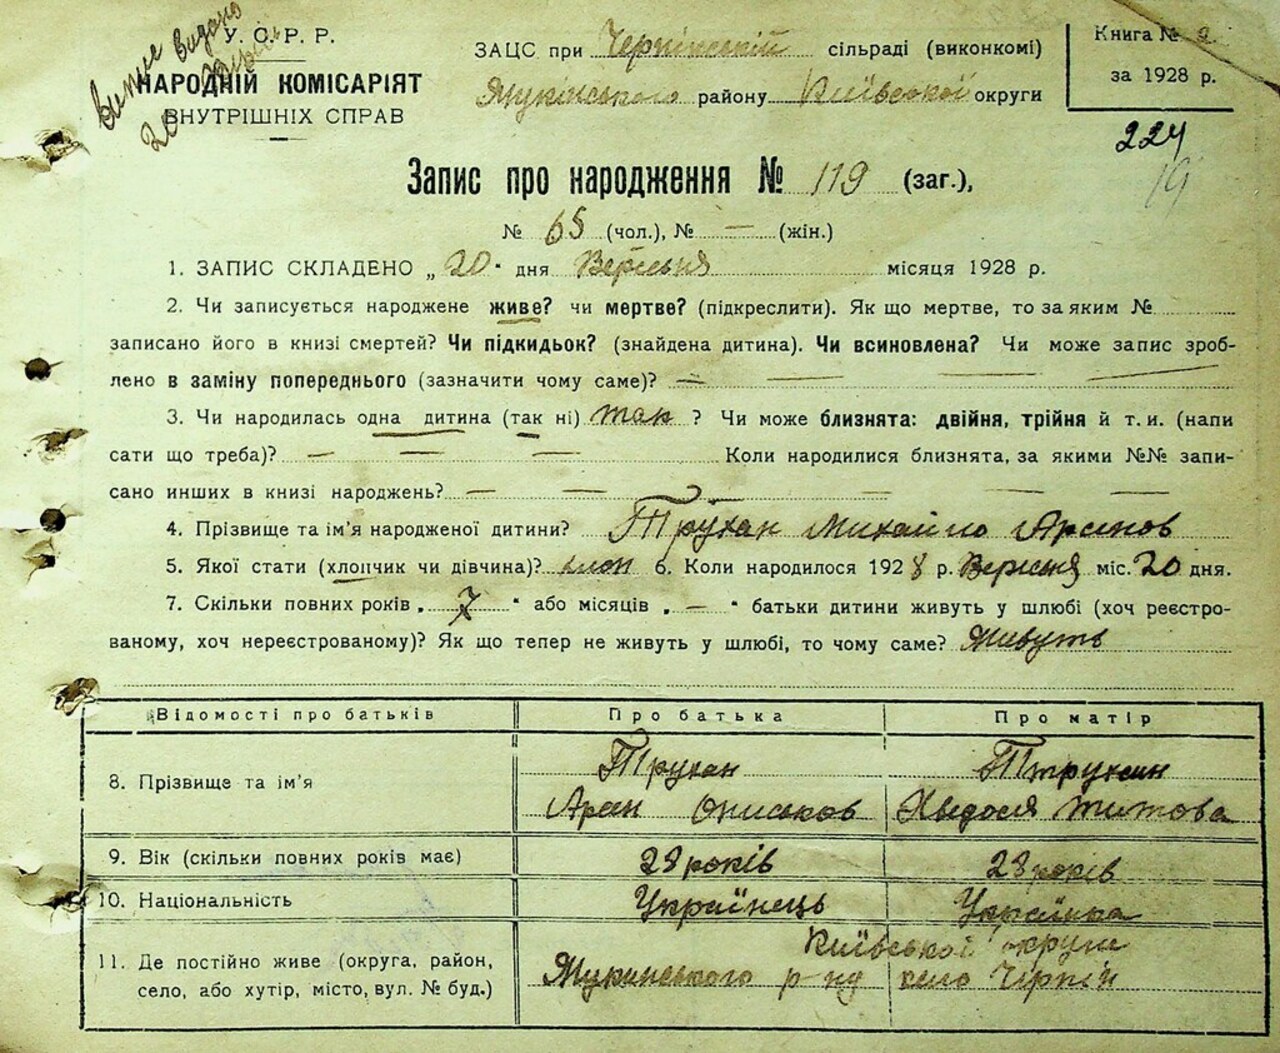 Випис видано
У. С. Р. Р.
НАРОДНІЙ КОМІСАРІЯТ
ВНУТРІШНІХ СПРАВ
ЗАЦС при Черпінській сільраді (виконкомі)
району Київської округи
Книга №
за 1928 р.
224
19
Запис про народження № 119 (заг.),
№ 65 (чол.), № — (жін.)
1. ЗАПИС СКЛАДЕНО „20" дня Вересня місяця 1928 р.
2. Чи записується народжене живе? чи мертве? (підкреслити). Як що мертве, то за яким №
записано його в книзі смертей? Чи підкидьок? (знайдена дитина). Чи всиновлена? Чи може запис зроб-
лено в заміну попереднього (зазначити чому саме)? — — — —
3. Чи народилась одна дитина (так ні) так ? Чи може близнята: двійня, трійня й т. и. (напи
сати що треба)? — — — Коли народилися близнята, за якими №№ запи-
сано инших в книзі народжень? — — — — — —
4. Прізвище та ім'я народженої дитини? Трухан Михайло Арсенов
5. Якої стати (хлопчик чи дівчина)? хлоп 6. Коли народилося 1928 р. Вересня міс. 20 дня.
7. Скільки повних років „ 7 " або місяців „ — " батьки дитини живуть у шлюбі (хоч реєстро-
ваному, хоч нереєстрованому)? Як що тепер не живуть у шлюбі, то чому саме? Живуть
Відомості про батьків Про батька Про матір
8. Прізвище та ім'я Трухан Трухан
Арсен Описьков Хведося Титова
9. Вік (скільки повних років має) 28 років 28 років
10. Національність Українець Українка
Київської округи
11. Де постійно живе (округа, район,
село, або хутір, місто, вул. № буд.) р-ну село Черпін